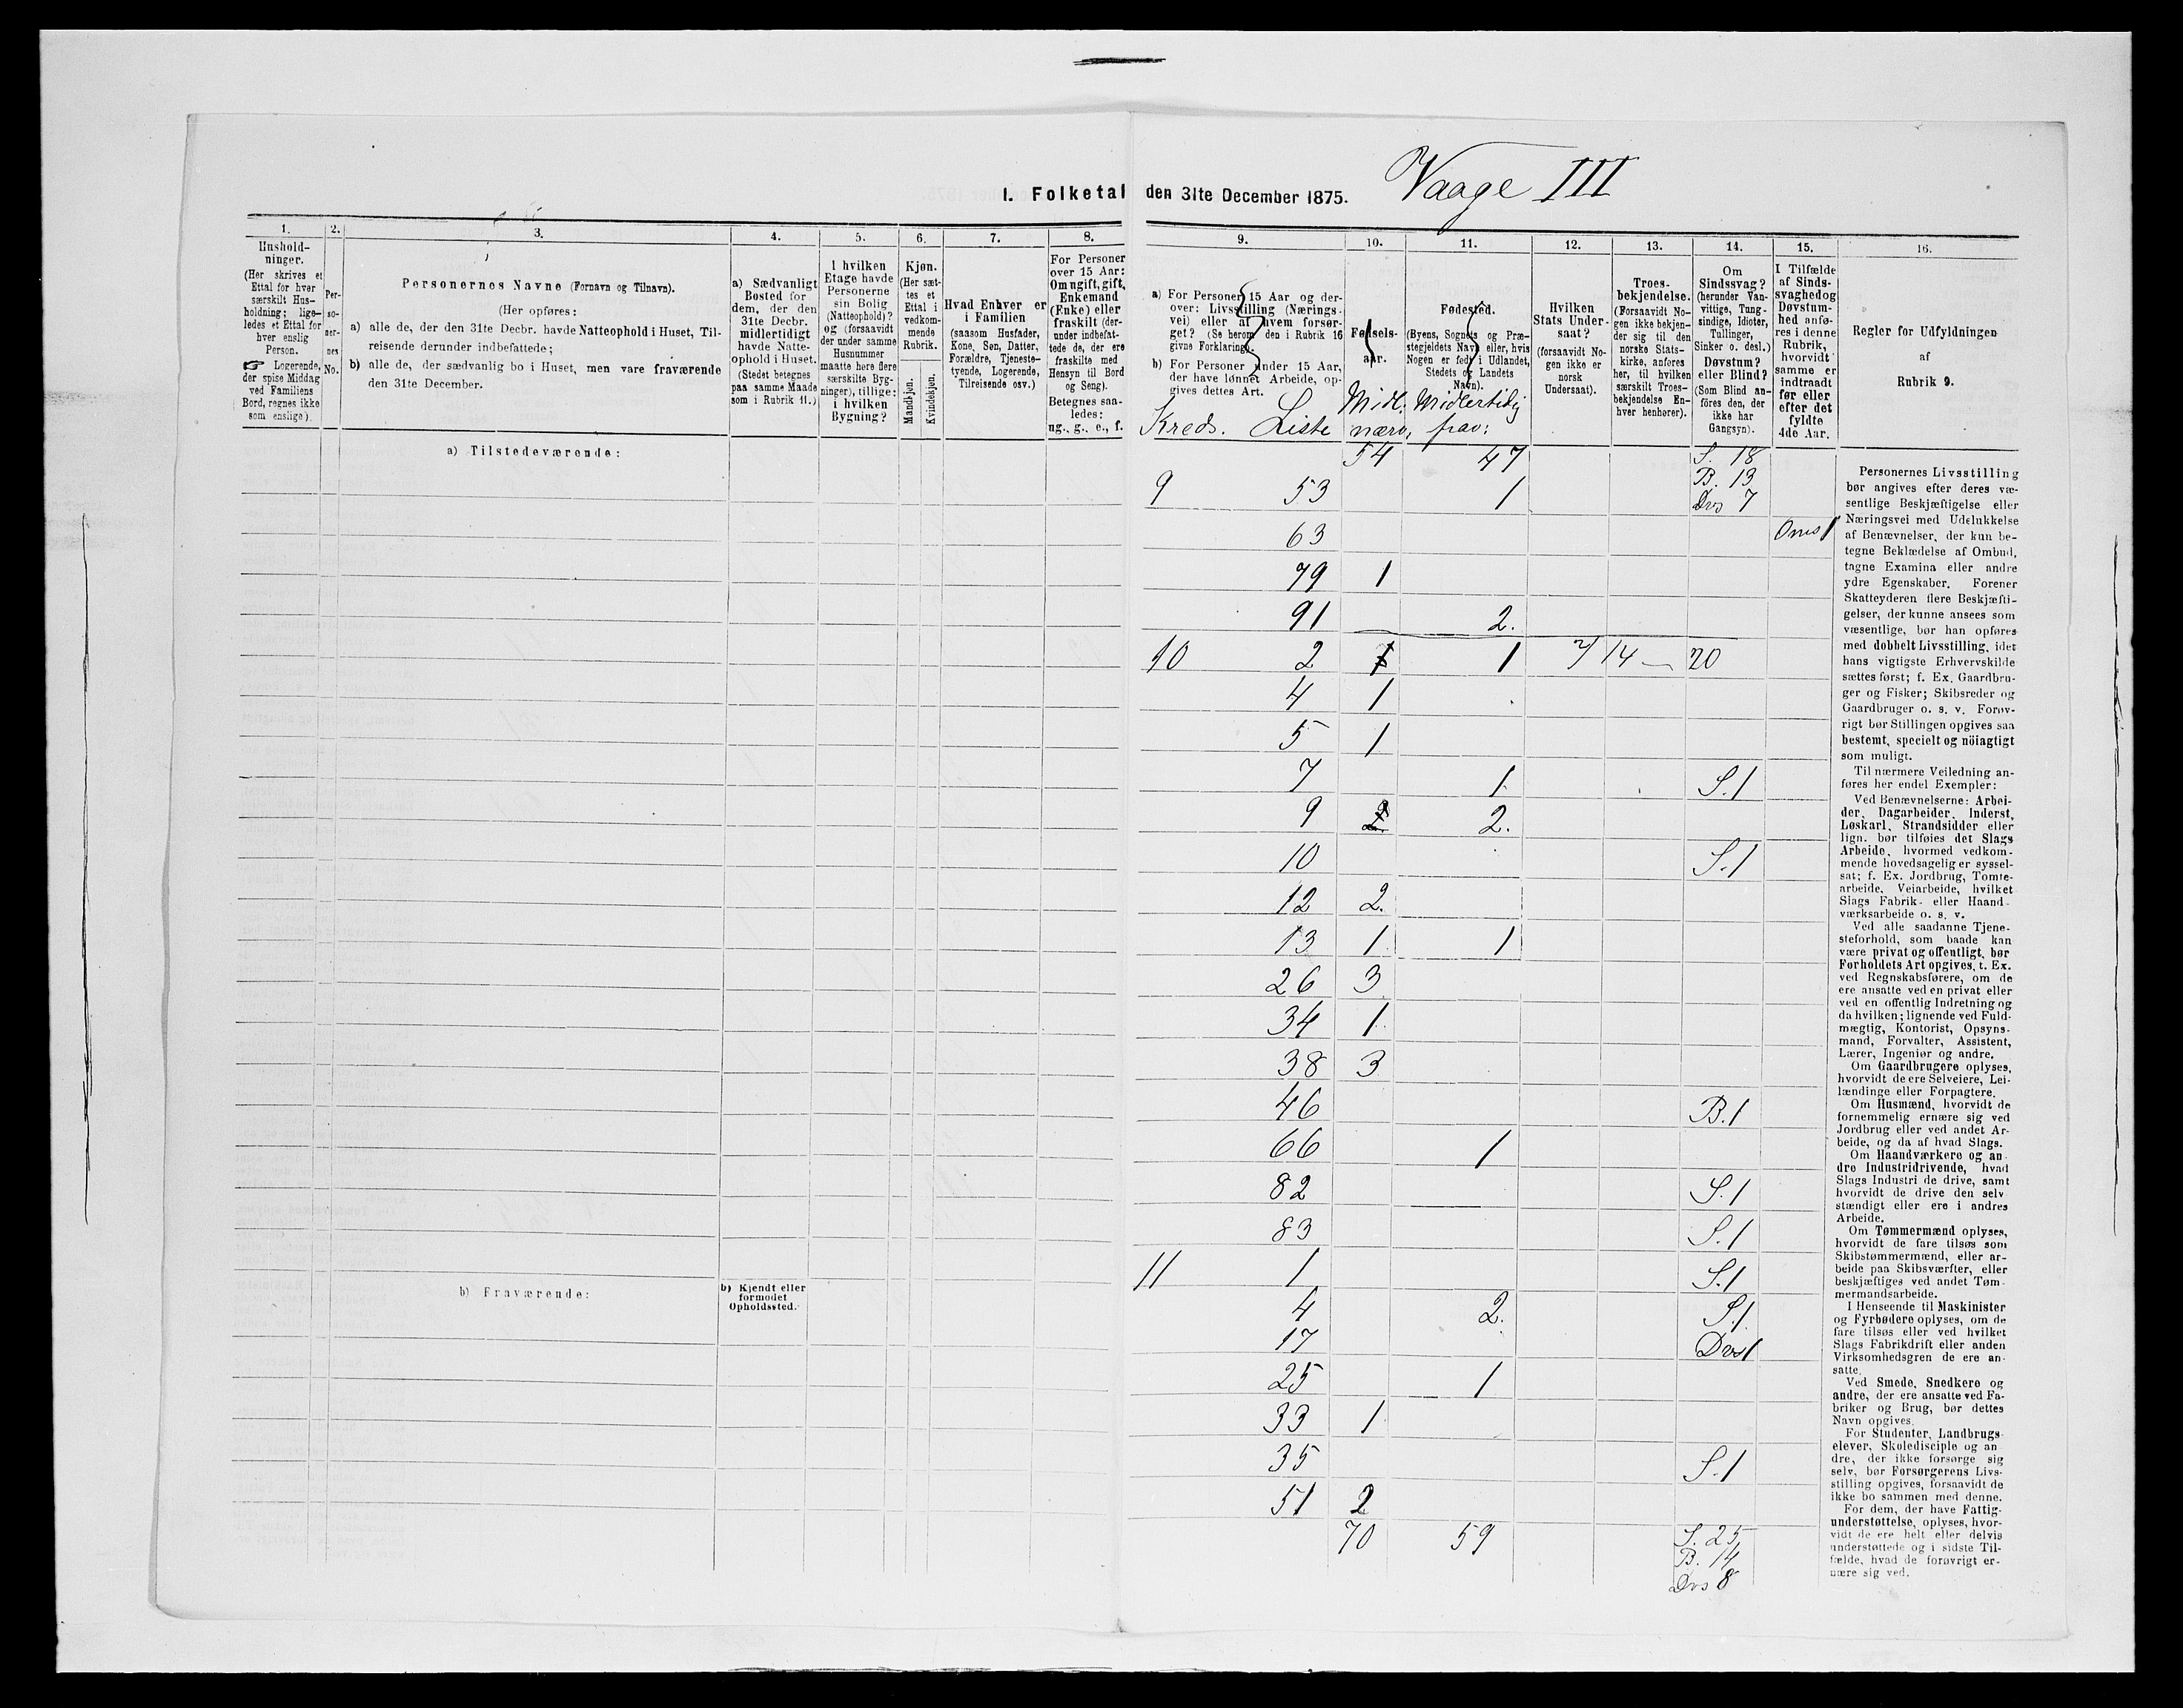 Vaage III
1. Folketal den 31te December 1875.
1.
2.
3.
4.
5.
6.
7.
8.
9.
10.
11.
12.
13.
14.
15.
16.
Hushold-
ninger.
(Her skrives et
Ettal for hver
særskilt Hus-
holdning; lige-
ledes et Ettal for
hver enslig
Person.
☞ Logerende,
der spise Middag
ved Familiens
Bord, regnes ikke
som enslige).
Per-
so-
ner-
nes
No.
Personernes Navne (Fornavn og Tilnavn).
(Her opføres:
a) alle de, der den 31te Decbr. havde Natteophold i Huset, Til-
reisende derunder indbefattede;
b) alle de, der sædvanlig bo i Huset, men vare fraværende
den 31te December.
a) Sædvanligt
Bosted for
dem, der den
31te Decbr.
midlertidigt
havde Natte-
ophold i Huset.
(Stedet betegnes
paa samme Maade
som i Rubrik 11.)
I hvilken
Etage havde
Personerne
sin Bolig
(Natteophold)?
og (forsaavidt
der under samme
Husnummer
maatte høre flere
særskilte Byg-
ninger), tillige:
i hvilken
Bygning?
Kjøn.
(Her sæt-
tes et
Ettal i
vedkom-
mende
Rubrik.
Mandkjøn.
Kvindekjøn.
Hvad Enhver er
i Familien
(saasom Husfader,
Kone, Søn, Datter,
Forældre, Tjeneste-
tyende, Logerende,
Tilreisende osv.)
For Personer
over 15 Aar:
Om ugift, gift,
Enkemand
(Enke) eller
fraskilt (der-
under indbefat-
tede de, der ere
fraskilte med
Hensyn til Bord
og Seng).
Betegnes saa-
ledes:
ug., g., e., f.
a) For Personer 15 Aar og der-
over: Livsstilling (Nærings-
vei) eller af hvem forsør-
get? (Se herom den i Rubrik 16
givne Forklaring).
b) For Personer under 15 Aar,
der have lønnet Arbeide, op-
gives dettes Art.
Kreds. Liste
Fødsels-
aar.
Midl.
nærv.
Fødested.
(Byens, Sognets og Præ-
stegjeldets Navn eller, hvis
Nogen er født i Udlandet,
Stedets og Landets
Navn).
Midlertidig
frav:
Hvilken
Stats Under-
saat?
(forsaavidt No-
gen ikke er
norsk
Undersaat).
Troes-
bekjendelse.
(Forsaavidt No-
gen ikke bekjen-
der sig til den
norske Stats-
kirke, anføres
her, til hvilken
særskilt Troes-
bekjendelse En-
hver henhører).
Om
Sindssvag?
(herunder Van-
vittige, Tung-
sindige, Idioter,
Tullinger,
Sinker o. desl.)
Døvstum?
eller Blind?
(Som Blind an-
føres den, der
ikke har
Gangsyn).
I Tilfælde
af Sinds-
svaghed og
Døvstum-
hed anfø-
res i denne
Rubrik,
hvorvidt
samme er
indtraadt
før eller
efter det
fyldte
4de Aar.
Regler for Udfyldningen
af
Rubrik 9.
a) Tilstedeværende:
54 47 S. 18
B. 13
9 53 1 Dvs 7
63
79 1
91 2.
10 2 1 14 — 20
4 1
5 1
7 1 S. 1
9 2.
10 S. 1
12 2.
13 1 1
26 3
34 1
38 3
46 B. 1
66 1
82 S. 1
83 S. 1
11 1 S. 1
4 2. S. 1
17 Dvs 1
25 1
33 1
35 S. 1
51 2
70 59 S. 25
B. 14
Dvs 8
b) Fraværende:
b) Kjendt eller
formodet
Opholdssted.
Personernes Livsstilling
bør angives efter deres væ-
sentlige Beskjæftigelse eller
Næringsvei med Udelukkelse
af Benævnelser, der kun be-
tegne Beklædelse af Ombud,
tagne Examina eller andre
ydre Egenskaber. Forener
Skatteyderen flere Beskjæfti-
gelser, der kunne ansees som
væsentlige, bør han opføres
med dobbelt Livsstilling, idet
hans vigtigste Erhvervskilde
sættes først; f. Ex. Gaardbru-
ger og Fisker; Skibsreder og
Gaardbruger o. s. v. Forøv-
rigt bør Stillingen opgives saa
bestemt, specielt og nöiagtigt
som muligt.
Til nærmere Veiledning an-
føres her endel Exempler:
Ved Benævnelserne: Arbei-
der, Dagarbeider, Inderst,
Løskarl, Strandsidder eller
lign. bør tilføies det Slags
Arbeide, hvormed vedkom-
mende hovedsagelig er syssel-
sat; f. Ex. Jordbrug, Tomte-
arbeide, Veiarbeide, hvilket
Slags Fabrik- eller Haand-
værksarbeide o. s. v.
Ved alle saadanne Tjene-
steforhold, som baade kan
være privat og offentligt, bør
Forholdets Art opgives, t. Ex.
ved Regnskabsførere, om de
ere ansatte ved en privat eller
ved en offentlig Indretning og
da hvilken; lignende ved Fuld-
mægtig, Kontorist, Opsyns-
mand, Forvalter, Assistent,
Lærer, Ingeniør og andre.
Om Gaardbrugere oplyses,
hvorvidt de ere Selveiere, Lei-
lændinge eller Forpagtere.
Om Husmænd, hvorvidt de
fornemmelig ernære sig ved
Jordbrug eller ved andet Ar-
beide, og da af hvad Slags.
Om Haandværkere og an-
dre Industridrivende, hvad
Slags Industri de drive, samt
hvorvidt de drive den selv-
stændigt eller ere i andres
Arbeide.
Om Tømmermænd oplyses,
hvorvidt de fare tilsøs som
Skibstømmermænd, eller ar-
beide paa Skibsværfter, eller
beskjæftiges ved andet Tøm-
mermandsarbeide.
I Henseende til Maskinister
og Fyrbødere oplyses, om de
fare tilsøs eller ved hvilket
Slags Fabrikdrift eller anden
Virksomhedsgren de ere an-
satte.
Ved Smede, Snedkere og
andre, der ere ansatte ved Fa-
briker og Brug, bør dettes
Navn opgives.
For Studenter, Landbrugs-
elever, Skoledisciple og an
dre, der ikke forsørge sig
selv, bør Forsørgerens Livs-
stilling opgives, forsaavidt de
ikke bo sammen med denne.
For dem, der have Fattig-
understøttelse, oplyses, hvor-
vidt de ere helt eller delvis
understøttede og i sidste Til-
fælde, hvad de forøvrigt er-
nære sig ved.